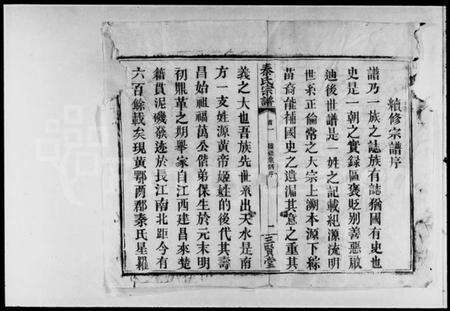 續修宗譜序
譜乃一族之誌族有誌猶國有史也
史是一朝之實録區褒貶别善惡啟
迪後世譜是一姓之記載紀源流明
世系正倫常之大宗上溯本源下綜
苗裔能補國史之遺漏其意之重其
秦氏宗譜
卷一
三賢堂
義之大也吾族先世系出天水是南
方一支姓源黄帝姬姓的後代其壽
昌始祖福萬公偕弟保生於元末明
初鼎革之期舉家自江西建昌來楚
籍貫泥磯發迹於長江南北距今有
六百餘載矣現黄鄂兩郡秦氏星羅